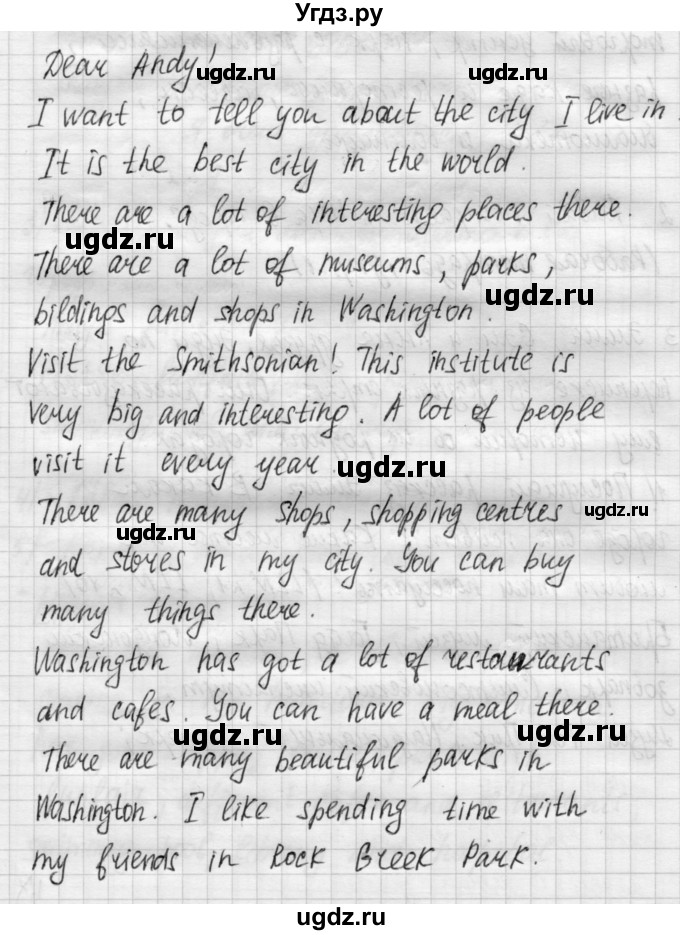 Угдз.ру
Dear Andy!
I want to tell you about the city I live in.
It is the best city in the world.
There are a lot of interesting places there.
There are a lot of museums, parks,
bildings and shops in Washington.
Visit the Smithsonian! This institute is
very big and interesting. A lot of people
visit it every year.
There are many shops, shopping centres
and stores in my city. You can buy
many things there.
Washington has got a lot of restaurants
and cafes. You can have a meal there.
There are many beautiful parks in
Washington. I like spending time with
my friends in Rock Greek Park.
ugdz.ru
ugdz.ru
ugdz.ru
ugdz.ru
ugdz.ru
ugdz.ru
ugdz.ru
ugdz.ru
ugdz.ru